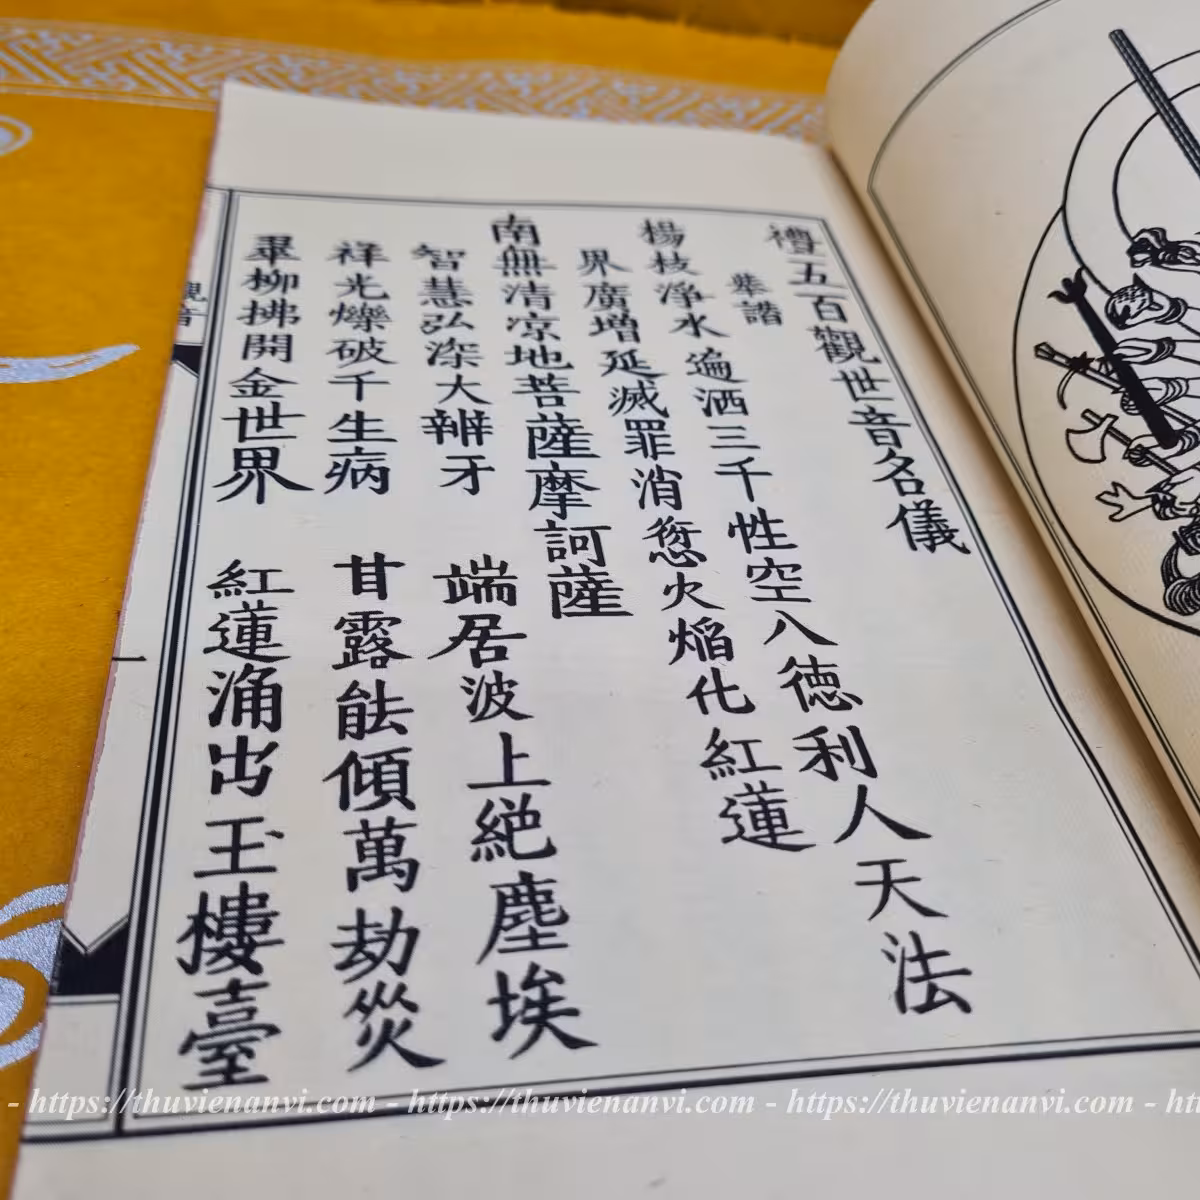 禮五百觀世音名儀
舉讚
楊枝淨水遍洒三千性空八德利人天法
界廣增延滅罪消愆火焔化紅蓮
南無清凉地菩薩摩訶薩
智慧弘深大辨牙 端居波上絕塵埃
祥光爍破千生病 甘露能傾萬劫災
翠柳拂開金世界 紅蓮涌出玉樓臺
觀音
一
- https://thuvienanvi.com - https://thuvienanvi.com - https://thuvienanvi.com - ht